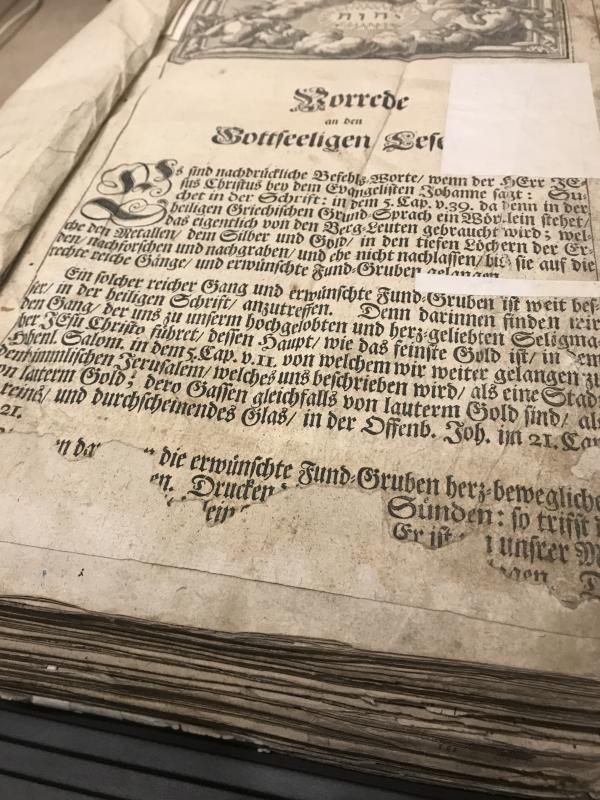 יהוה
Vorrede
an den
Gottseeligen Lese
Es sind nachdrückliche Befehls-Worte/ wenn der HErr JE-
sus Christus bey dem Evangelisten Johanne sagt: Su-
chet in der Schrift: in dem 5. Cap. v. 39. da denn in der
heiligen Griechischen Grund-Sprach ein Wörtlein stehet/
das eigentlich von den Berg-Leuten gebraucht wird; wel-
che den Metallen/ dem Silber und Gold/ in den tiefen Löchern der Er-
den/ nachforschen und nachgraben/ und ehe nicht nachlassen/ bis sie auf die
rechte reiche Gänge/ und erwünschte Fund-Gruben gelangen
Ein solcher reicher Gang und erwünschte Fund-Gruben ist weit bes-
ser/ in der heiligen Schrift/ anzutreffen. Denn darinnen finden wir
den Gang/ der uns zu unserm hochgelobten und herz-geliebten Seligma-
her JEsu Christo führet/ dessen Haupt/ wie das feinste Gold ist/ in dem
Hhenl. Salom. in dem 5. Cap. v. 11. von welchem wir weiter gelangen zu
dem himmlischen Jerusalem/ welches uns beschrieben wird/ als eine Stad
on lauterm Gold; dero Gassen gleichfalls von lauterm Gold sind/ als
reine/ und durchscheinendes Glas/ in der Offenb. Joh. im 21. Cap
21.
die erwünschte Fund-Gruben herz-bewegliche
en. Drucken
ein Sünden: so trifft
Er ist unsrer